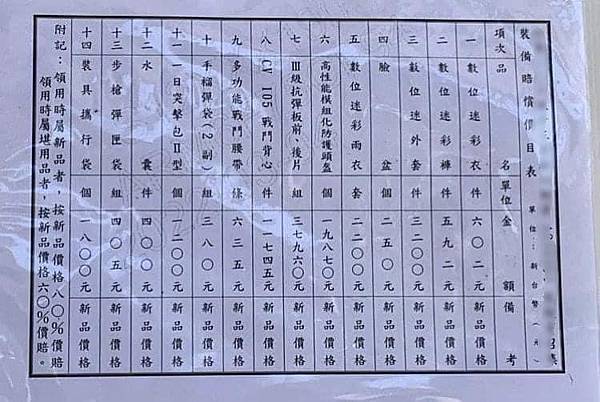 裝備賠償價目表
單位：新台幣（元）
項次 品名 單位 金額 備考
一 數位迷彩衣 件 六〇二元 新品價格
二 數位迷彩褲 件 五九二元 新品價格
三 數位迷外套 件 三二〇〇元 新品價格
四 臉盆 個 五〇元 新品價格
五 數位迷彩雨衣 套 二二〇〇元 新品價格
六 高性能模組化防護頭盔 個 一九八七〇元 新品價格
七 Ⅲ級抗彈板前、後片 組 三七九六〇元 新品價格
八 CV 105戰鬥背心 件 一一七四五元 新品價格
九 多功能戰鬥腰帶 條 六三五元 新品價格
十 手榴彈袋(2副) 組 三八〇元 新品價格
十一 一日突擊包Ⅱ型 個 一二〇〇元 新品價格
十二 水囊 件 四〇〇元 新品價格
十三 步槍彈匣袋 組 四〇五元 新品價格
十四 裝具攜行袋 個 一八〇〇元 新品價格
附記：領用時屬新品者，按新品價格八〇%價賠
領用時屬堪用品者，按新品價格六〇%價賠。